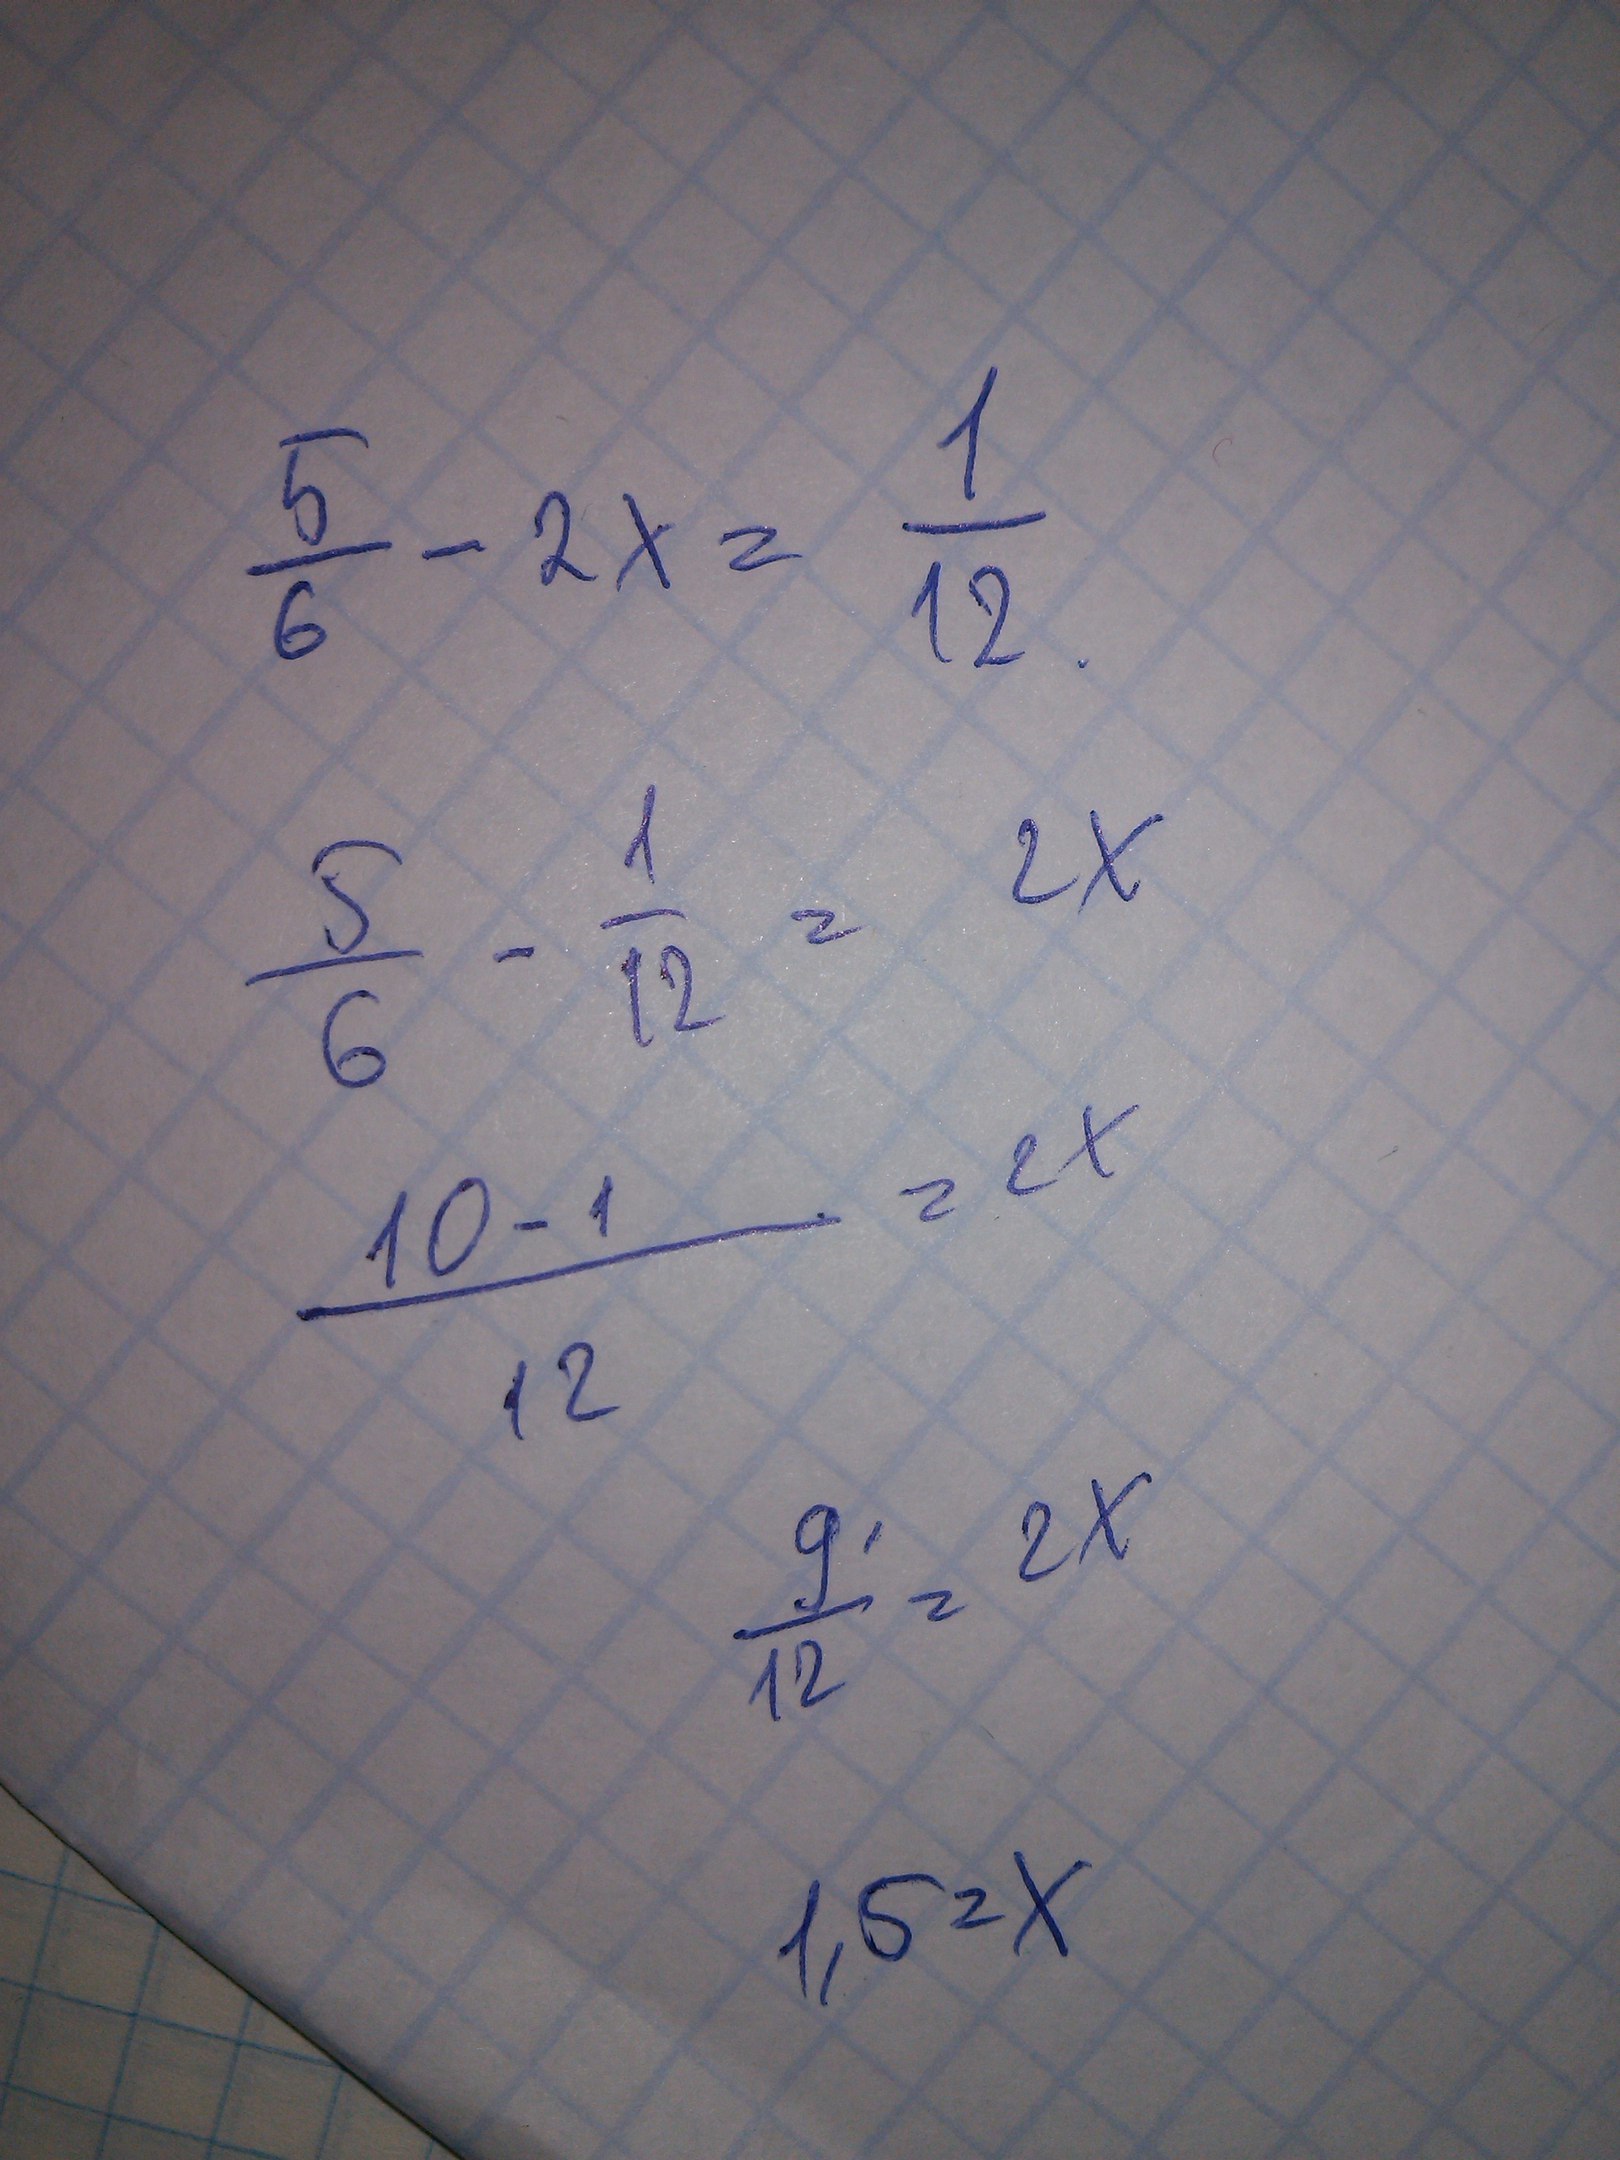 5/6 - 2x = 1/12.
5/6 - 1/12 = 2x
10-1/12 = 2x
9/12 = 2x
1,5=x